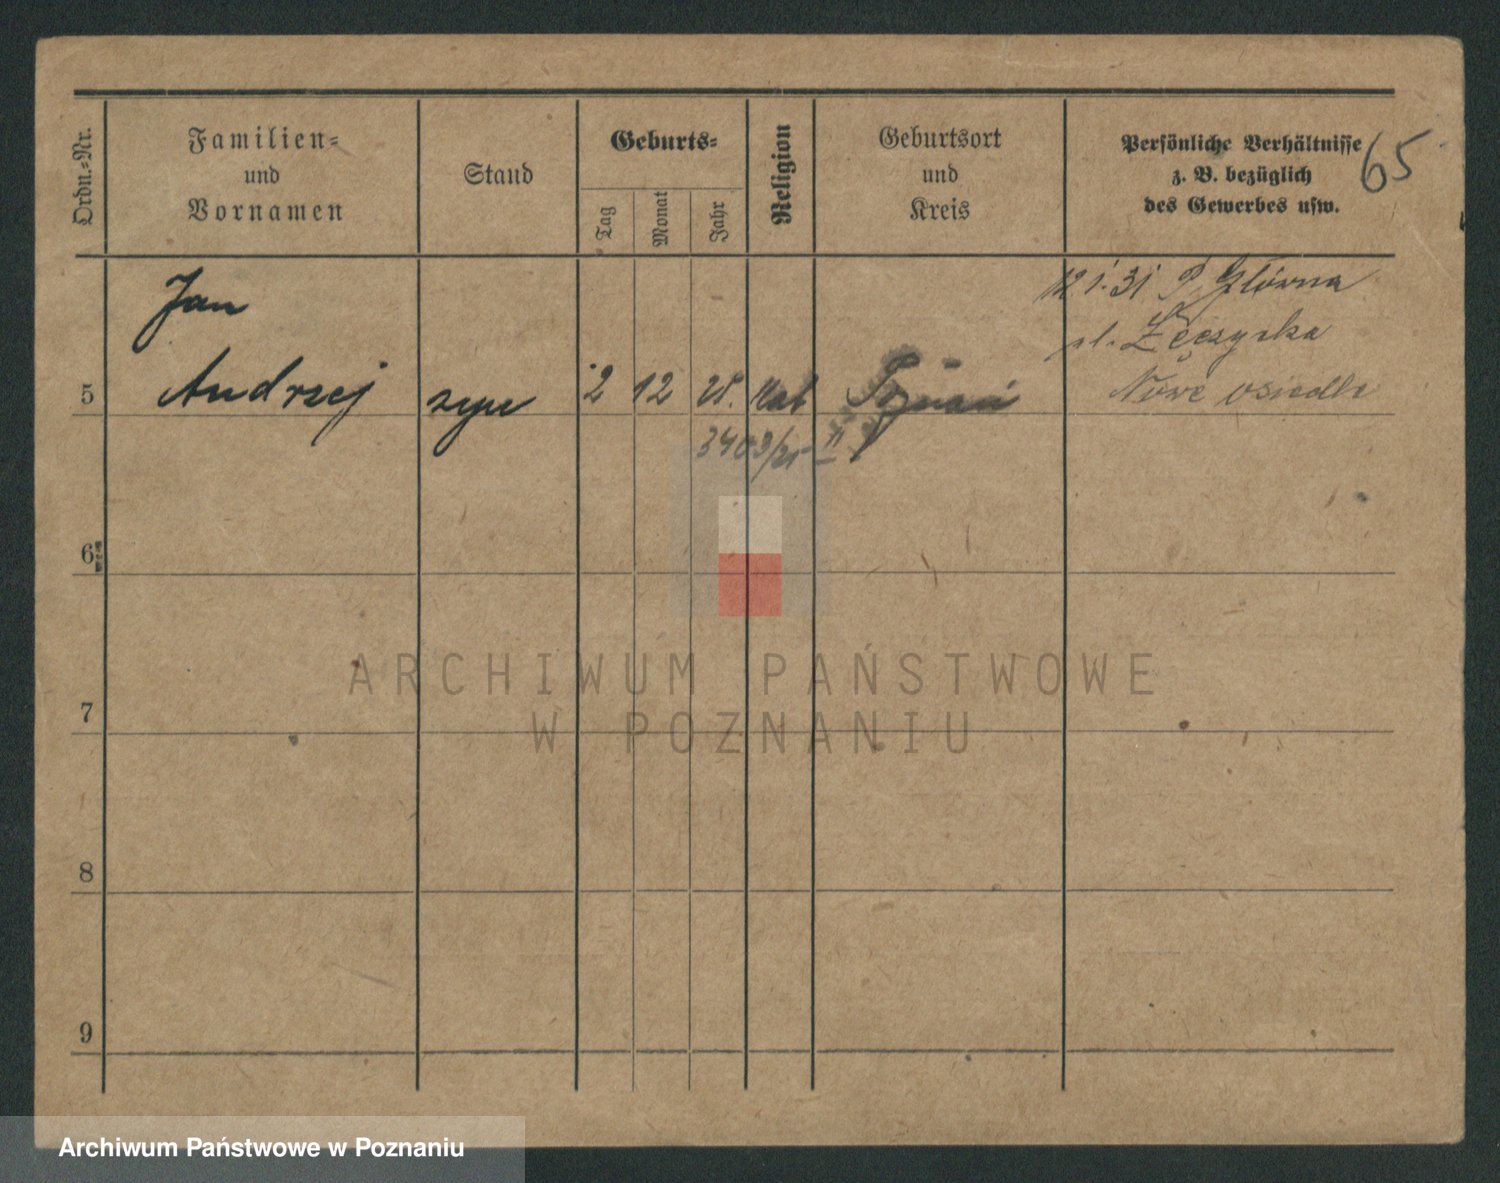 Ordn.-Nr.
Familien-
und
Vornamen
Stand
Geburts-
Tag
Monat
Jahr
Religion
Geburtsort
und
Kreis
Persönliche Verhältnisse
z. B. bezüglich
des Gewerbes usw.
65
12 1. 31 P. Główna
Jan
ul. Łęczycka
5 Andrzej syn 2 12 25. kat Poznań Nowe osiedle
3403/25 II
6
7
8
9
ARCHIWUM PAŃSTWOWE
W POZNANIU
Archiwum Państwowe w Poznaniu